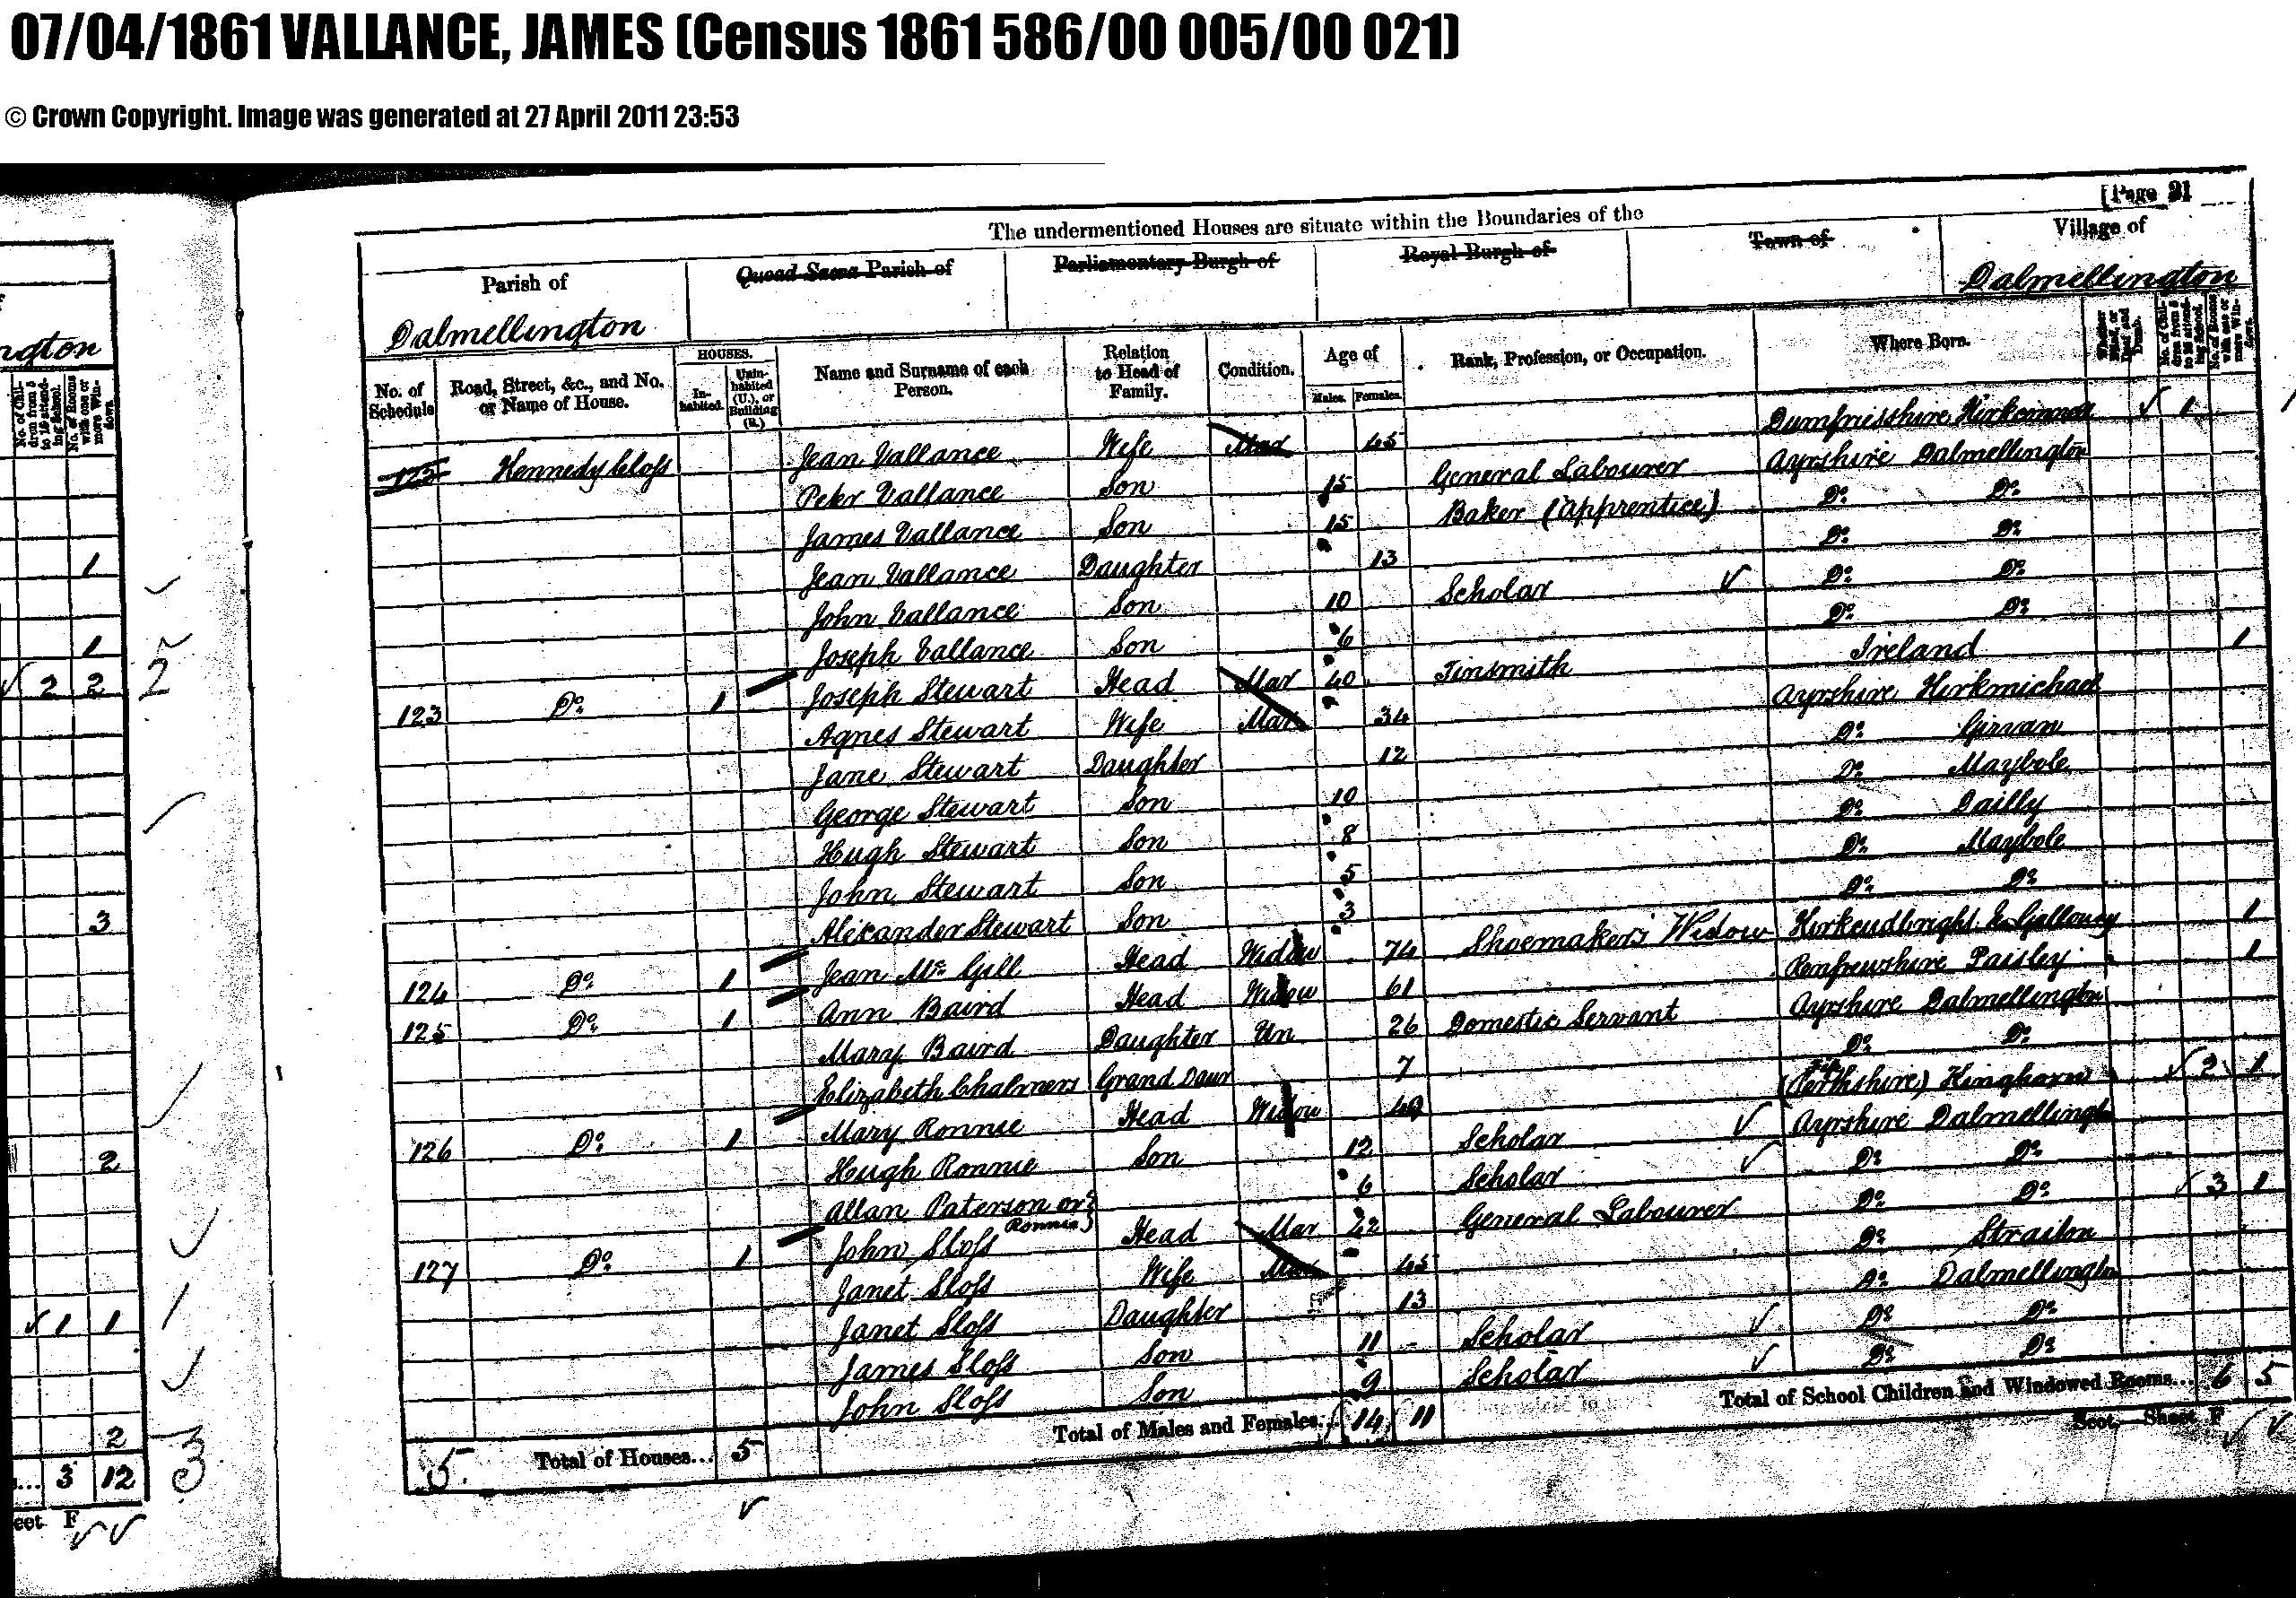 07/04/1861 VALLANCE, JAMES (Census 1861 586/00 005/00 021)
© Crown Copyright. Image was generated at 27 April 2011 23:53
[Page 21
The undermentioned Houses are situate within the Boundaries of the
Parish of Quoad Sacra Parish of Parliamentary Burgh of Royal Burgh of Town of Village of
Dalmellington Dalmellington
No. of Schedule Road, Street, &c., and No. or Name of House. HOUSES. Inhabited. Uninhabited (U.), or Building (B.) Name and Surname of each Person. Relation to Head of Family. Condition. Age of Males. Females. Rank, Profession, or Occupation. Where Born. Whether Blind, or Deaf and Dumb. No. of Children from 5 to 15 attending School. No. of Rooms with one or more Windows.
122 Kennedy Closs Jean Vallance Wife Mar 45 Dumfriesshire ✓ 1
Peter Vallance Son 15 General Labourer Ayrshire Dalmellington
James Vallance Son 15 Baker (apprentice) Do. Do.
Jean Vallance Daughter 13 Do. Do.
John Vallance Son 10 Scholar ✓ Do. Do.
Joseph Vallance Son 6 Do. Do.
123 Do. 1 Joseph Stewart Head Mar 40 Tinsmith Ireland 1
Agnes Stewart Wife Mar 34 Ayrshire Kirkmichael
Jane Stewart Daughter 12 Do. Girvan
George Stewart Son 10 Do. Maybole
Hugh Stewart Son 8 Do. Dailly
John Stewart Son 5 Do. Maybole
Alexander Stewart Son 3 Do. Do.
124 Do. 1 Jean McGill Head Widow 74 Shoemakers Widow Kirkcudbright 1
125 Do. 1 Ann Baird Head Widow 61 Renfrewshire Paisley 1
Mary Baird Daughter Un 26 Domestic Servant Ayrshire Dalmellington
Elizabeth Chalmers Grand Daur 7 Do. Do.
126 Do. 1 Mary Ronnie Head Widow 49 (Perthshire) Kinghorn ✓ 2 1
Hugh Ronnie Son 12 Scholar ✓ Ayrshire Dalmellington
Allan Paterson or Ronnie) 6 Scholar ✓ Do. Do.
127 Do. 1 John Sloss Head Mar 42 General Labourer Do. Do. ✓ 3 1
Janet Sloss Wife Mar 45 Do. Straiton
Janet Sloss Daughter 13 Do. Dalmellington
James Sloss Son 11 - Scholar ✓ Do. Do.
John Sloss Son 9 Scholar ✓ Do. Do.
5. Total of Houses... 5 Total of Males and Females... 14 11 Total of School Children and Windowed Rooms... 6 5
Scot.—Sheet F